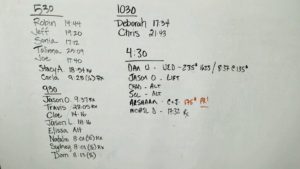 530
Robin 19:44
Jeff 19:20
Sonia 17:12
Tatiana 25:09
Joe 17:40
Stacy A. 18:34 Rx
Carla 9:28 (S) Rx
930
Jason O. 9:37 Rx
Travis 28:05 Rx
Cloe 14:16
Jason L. 18:16
Elissa Alt
Natalie 8:01 (S) Rx
Sydney 8:01 (S) Rx
Dom 8:13 (S)
1030
Deborah 17:34
Chris 21:43
4:30
Dan U - JED - 275#
Jason O. - LIFT
Chad - ALT
Sol - ALT
Arshaan - C+J. 175# PR!
- 17:32 Rx